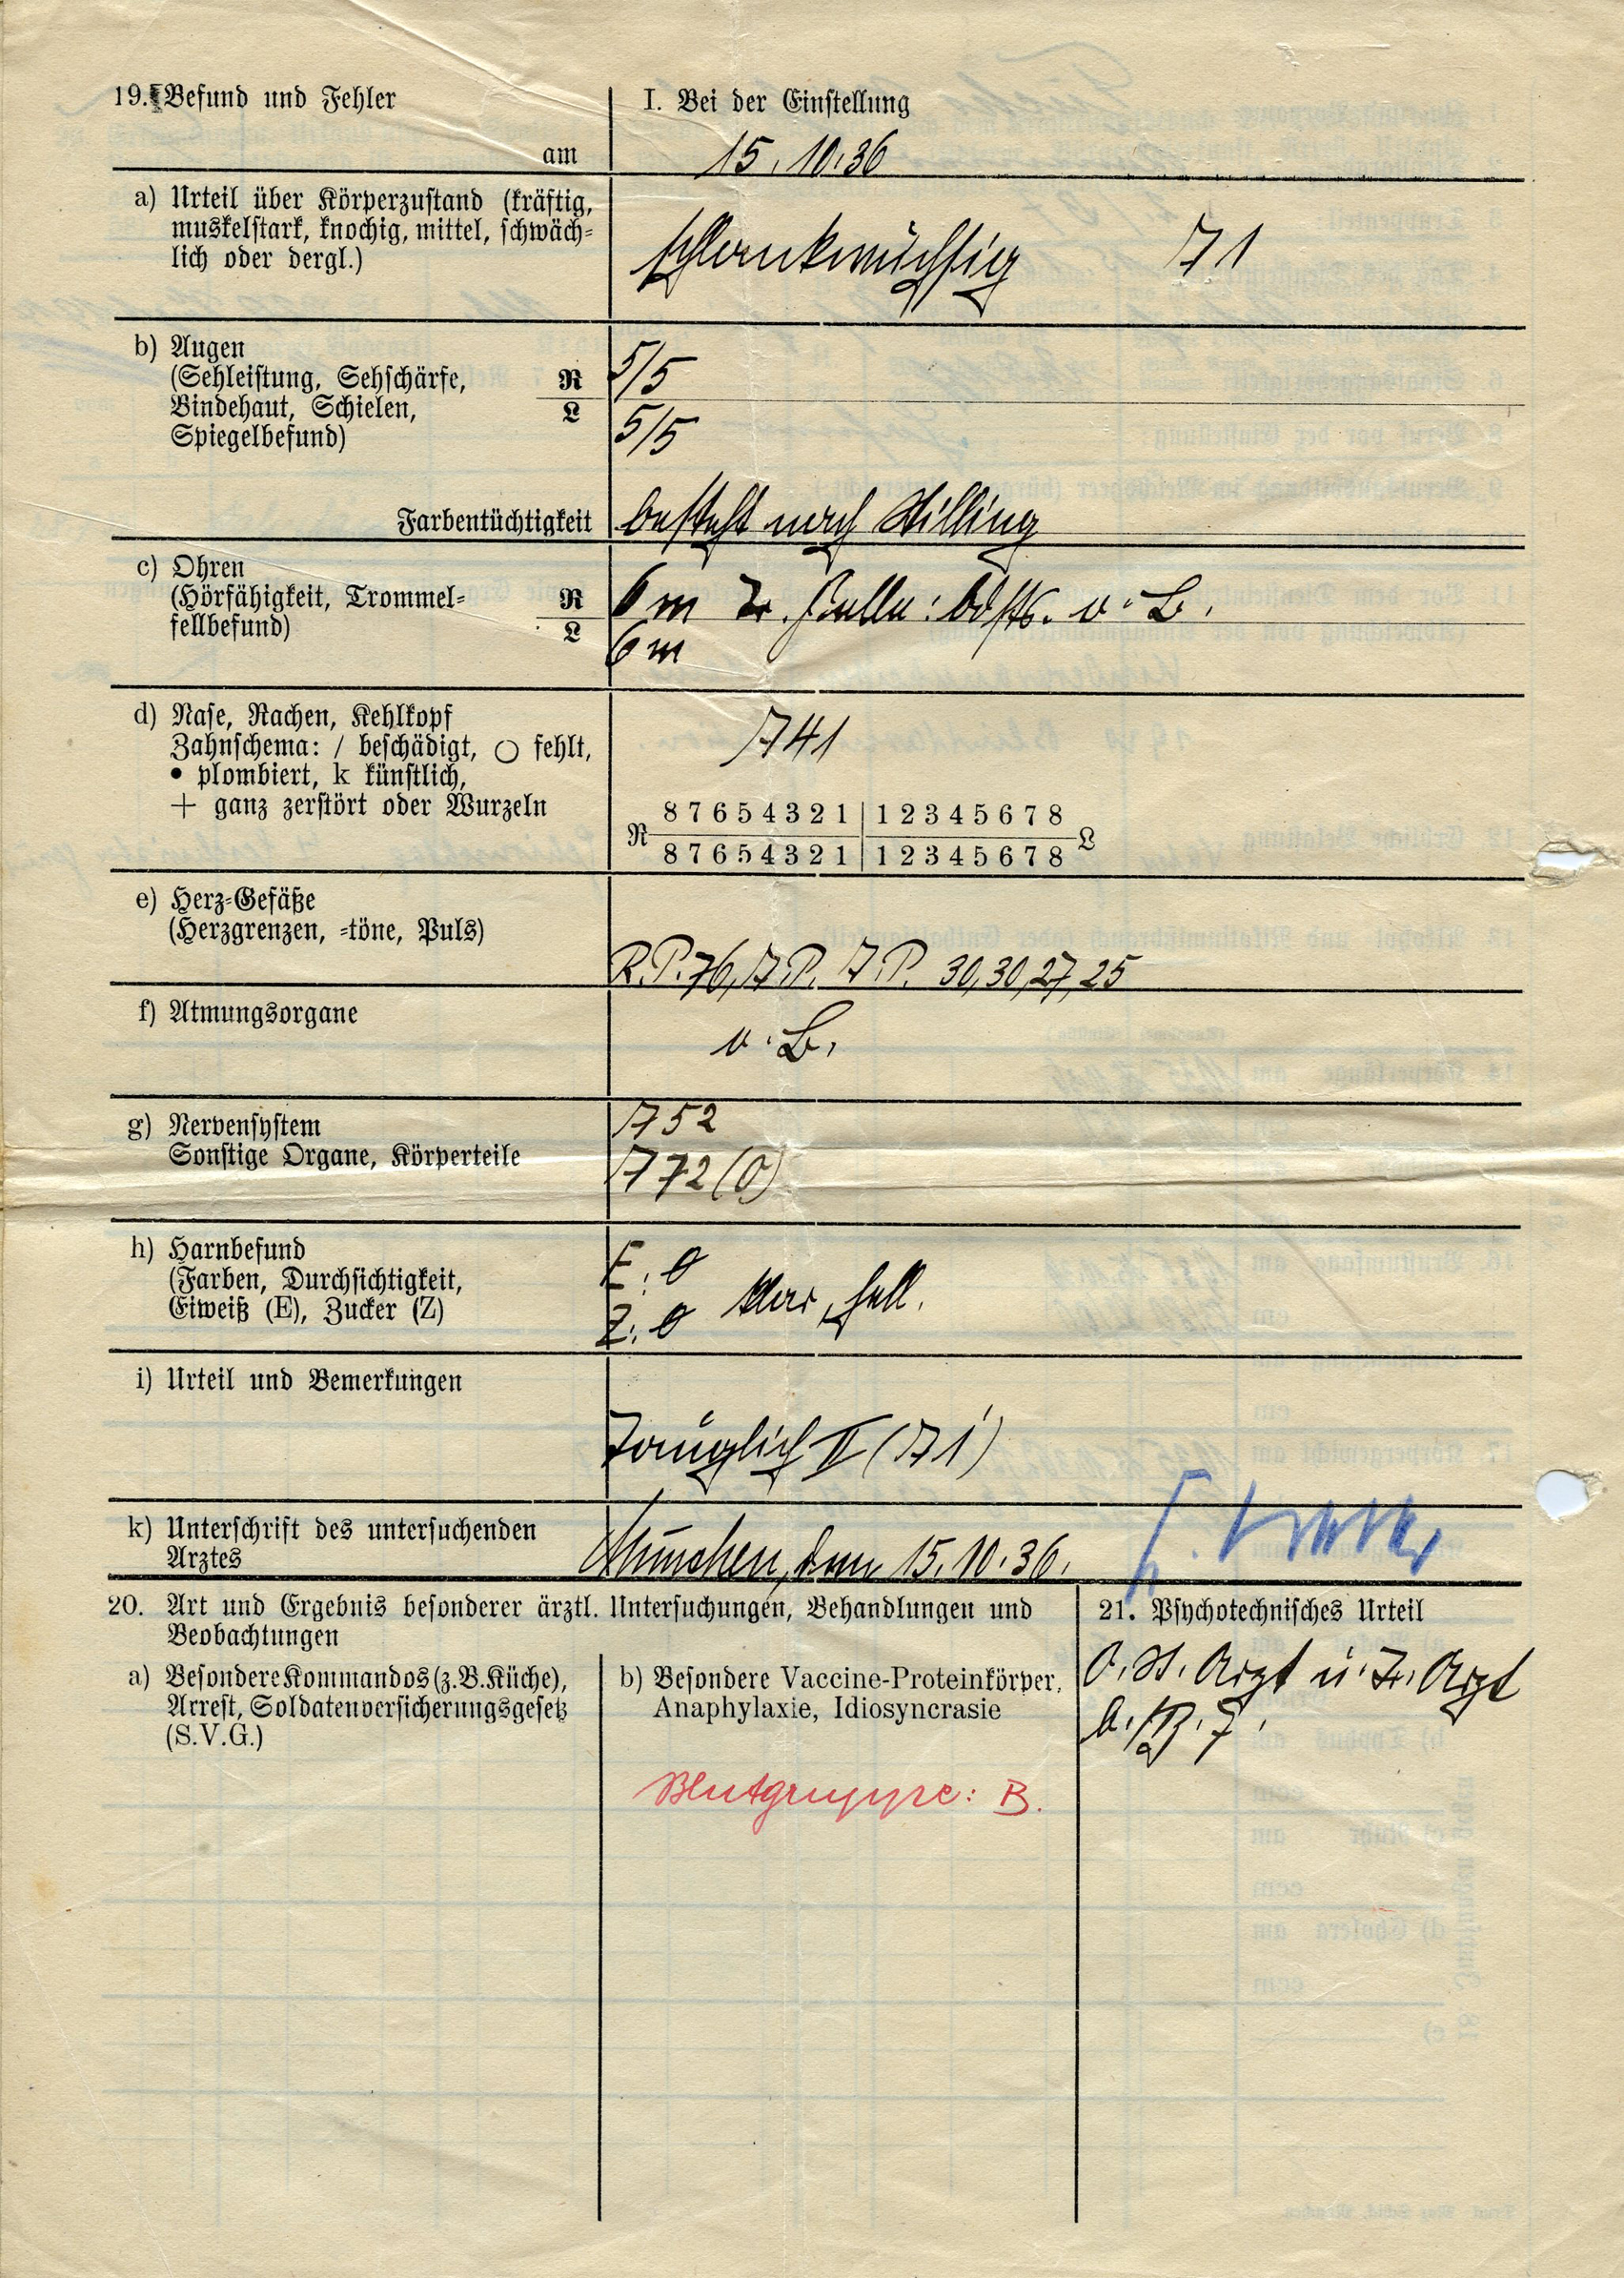 19. Befund und Fehler
am
I. Bei der Einstellung
15.10.36
a) Urteil über Körperzustand (kräftig,
muskelstark, knochig, mittel, schwäch-
lich oder dergl.)
schlankwüchsig A 1
b) Augen
(Sehleistung, Sehschärfe,
Bindehaut, Schielen,
Spiegelbefund)
R 5/5
L 5/5
Farbentüchtigkeit
besteht nach Stilling
c) Ohren
(Hörfähigkeit, Trommel-
fellbefund)
R 6 m Tr. felle: bdsts. o. B.
L 6 m
d) Nase, Rachen, Kehlkopf
Zahnschema: / beschädigt, ○ fehlt,
• plombiert, k künstlich,
+ ganz zerstört oder Wurzeln
A 41
8 7 6 5 4 3 2 1 | 1 2 3 4 5 6 7 8
R L
8 7 6 5 4 3 2 1 | 1 2 3 4 5 6 7 8
e) Herz-Gefäße
(Herzgrenzen, -töne, Puls)
R.P. 76, A.P. 30, 30, 27, 25
f) Atmungsorgane
o. B.
g) Nervensystem
Sonstige Organe, Körperteile
A 52
A 72 (O)
h) Harnbefund
(Farben, Durchsichtigkeit,
Eiweiß (E), Zucker (Z)
E: θ
Z: θ klar, hell.
i) Urteil und Bemerkungen
Tauglich II (A 1)
k) Unterschrift des untersuchenden
Arztes
München, den 15.10.36.
20. Art und Ergebnis besonderer ärztl. Untersuchungen, Behandlungen und
Beobachtungen
a) Besondere Kommandos (z. B. Küche),
Arrest, Soldatenversicherungsgesetz
(S.V.G.)
b) Besondere Vaccine-Proteinkörper,
Anaphylaxie, Idiosyncrasie
Blutgruppe: B.
21. Psychotechnisches Urteil
O. St. Arzt u. Tr. Arzt